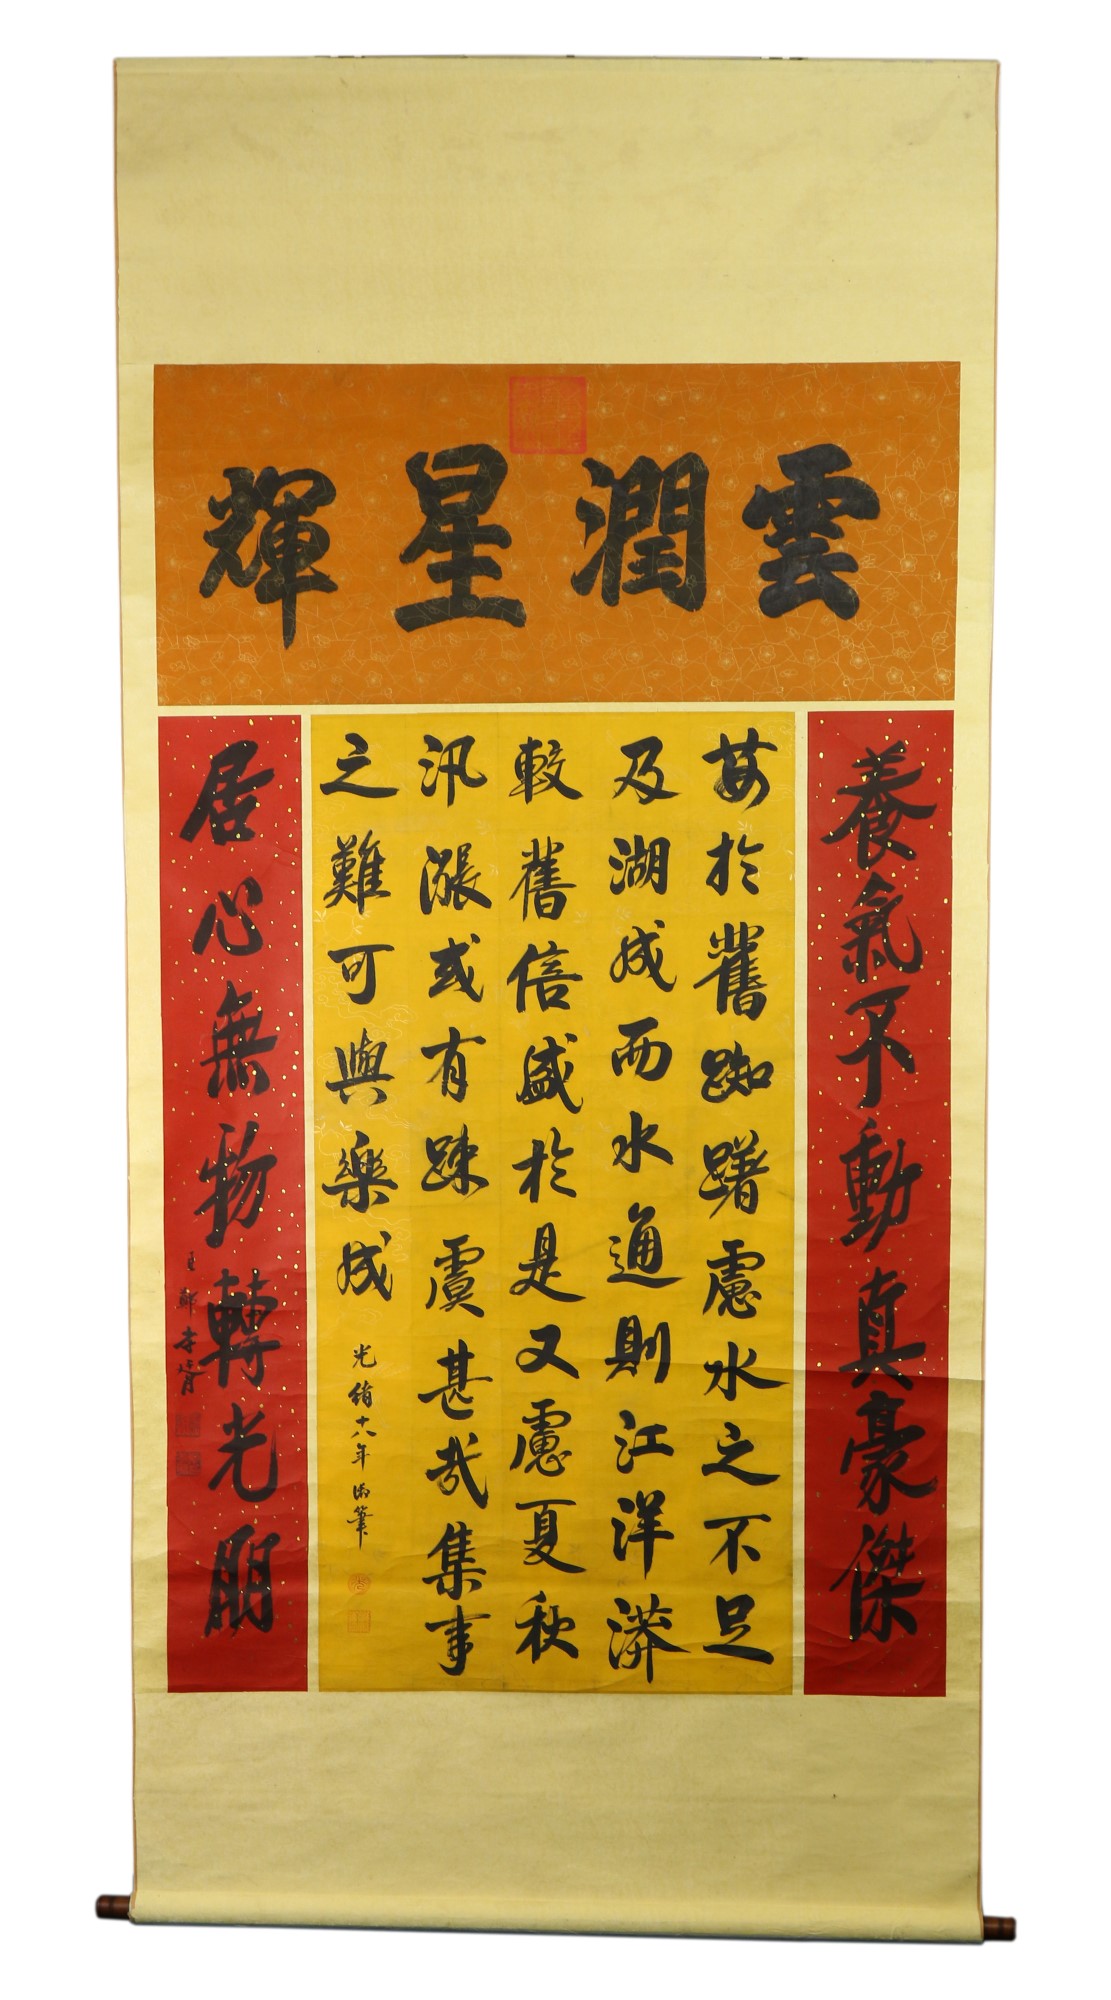 雲潤星輝
養氣不動真豪傑
於舊踟躇慮水之不足
及湖成而水通則江洋漭
較舊倍盛於是又慮夏秋
汛漲或有疎虞甚哉集事
之難可與樂成
光緒十八年御筆
居心無物轉光明
臣鄭孝胥